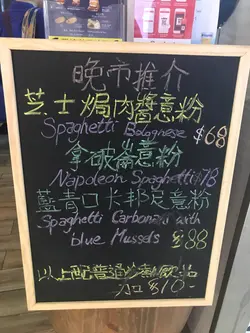 晚市推介
芝士焗肉醬意粉
Spaghetti Bolognese $68
拿破崙意粉
Napoleon Spaghetti $78
藍青口卡邦尼意粉
Spaghetti Carbonara with
blue Mussels $88
以上配普通沙冷飲品
加 $10-